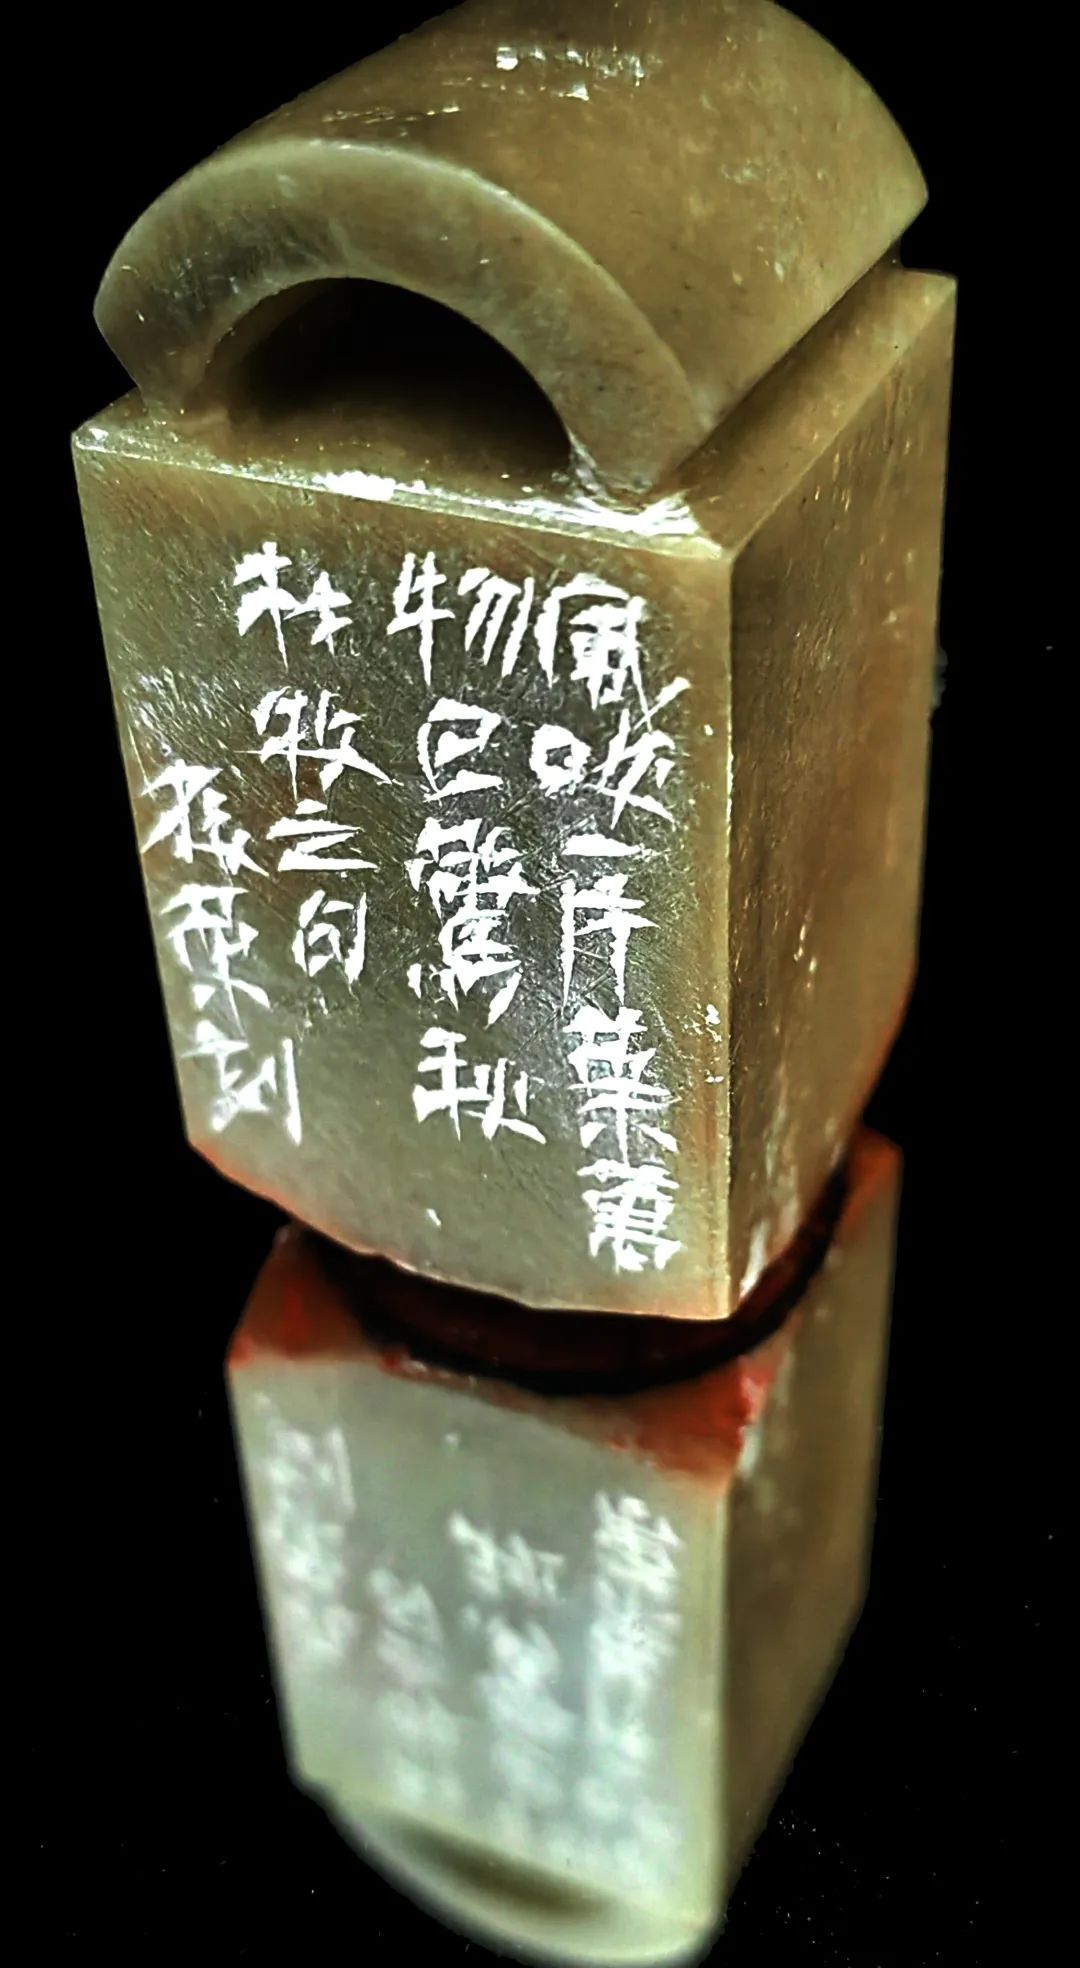 風吹一片葉萬
物已驚秋
杜牧之句
刻